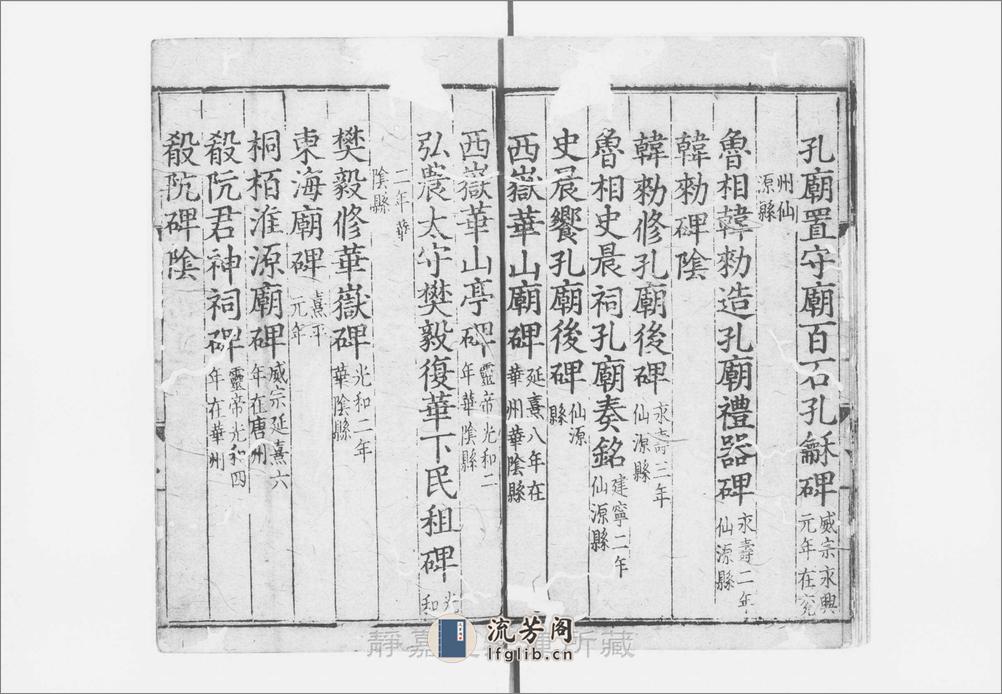 孔廟置守廟百石孔龢碑 威宗永興元年在兖
州仙源縣
魯相韓勑造孔廟禮器碑 永壽二年仙源縣
韓勑碑隂
韓勑修孔廟後碑 永壽三年仙源縣
魯相史晨祠孔廟奏銘 建寧二年仙源縣
史晨饗孔廟後碑 仙源縣
西嶽華山廟碑 延熹八年在華州華隂縣
西嶽華山亭碑 靈帝光和二年華隂縣
弘農太守樊毅復華下民租碑 光和
二年華隂縣
樊毅修華嶽碑 光和二年華隂縣
東海廟碑 熹平元年
桐栢淮源廟碑 威宗延熹六年在唐州
殽阮君神祠碑 靈帝光和四年在華州
殽阮碑隂
流芳阁
lfglib.cn